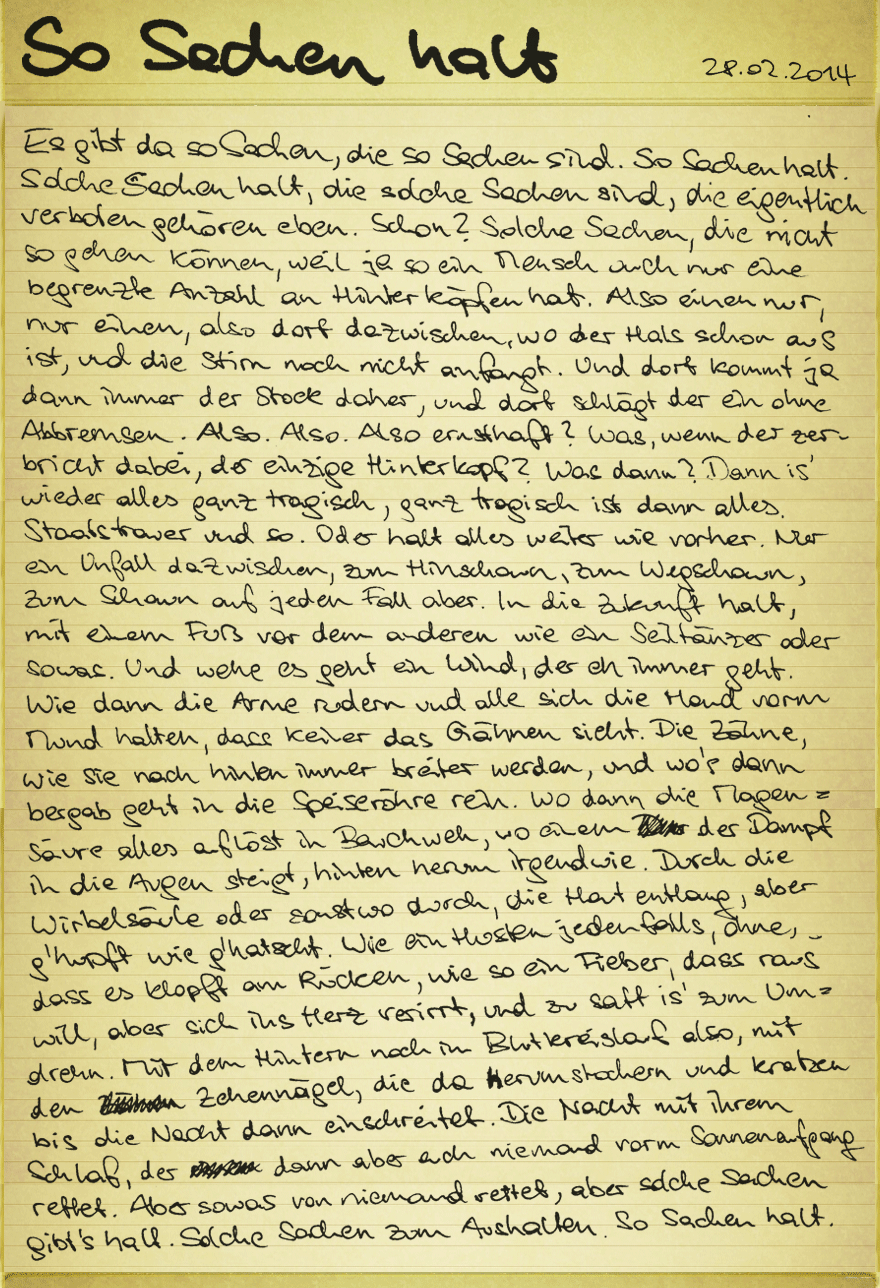 So Sachen halt
28.02.2014
Es gibt da so Sachen, die so Sachen sind. So Sachen halt.
Solche Sachen halt, die solche Sachen sind, die eigentlich
verboten gehören eben. Schon? Solche Sachen, die nicht
so gehen können, weil ja so ein Mensch auch nur eine
begrenzte Anzahl an Hinterköpfen hat. Also einen nur,
nur einen, also dort dazwischen, wo der Hals schon aus
ist, und die Stirn noch nicht anfangt. Und dort kommt ja
dann immer der Stock daher, und dort schlägt der ein ohne
Abbremsen. Also. Also. Also ernsthaft? Was, wenn der zer-
bricht dabei, der einzige Hinterkopf? Was dann? Dann is'
wieder alles ganz tragisch, ganz tragisch ist dann alles.
Staatstrauer und so. Oder halt alles weiter wie vorher. Nur
ein Unfall dazwischen, zum Hinschaun, zum Wegschaun,
zum Schaun auf jeden Fall aber. In die Zukunft halt,
mit einem Fuß vor dem anderen wie ein Seiltänzer oder
sowas. Und wehe es geht ein Wind, der eh immer geht.
Wie dann die Arme rudern und alle sich die Hand vorm
Mund halten, dass keiner das Gähnen sieht. Die Zähne,
wie sie nach hinten immer breiter werden, und wo's dann
bergab geht in die Speiseröhre rein. Wo dann die Magen=
säure alles auflöst in Bauchweh, wo einem der Dampf
in die Augen steigt, hinten herum irgendwie. Durch die
Wirbelsäule oder sonstwo durch, die Haut entlang, aber
g'hupft wie g'hatscht. Wie ein Husten jedenfalls, ohne,
dass es klopft am Rücken, wie so ein Fieber, dass raus
will, aber sich ins Herz verirrt, und zu satt is' zum Um=
drehn. Mit dem Hintern noch im Blutkreislauf also, mit
den Zehennägel, die da herumstochern und kratzen
bis die Nacht dann einschreitet. Die Nacht mit ihrem
Schlaf, der dann aber auch niemand vorm Sonnenaufgang
rettet. Aber sowas von niemand rettet, aber solche Sachen
gibt's halt. Solche Sachen zum Aushalten. So Sachen halt.